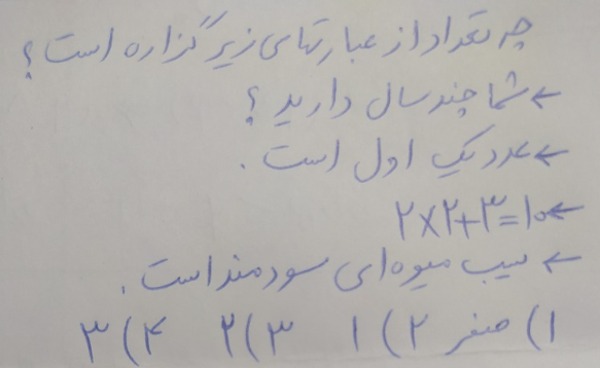 چه تعداد از عبارتهای زیر گزاره است؟
← شما چند سال دارید؟
← عدد یک اول است.
← ۲×۲+۳=۱۰
← سیب میوه ای سودمند است.
۱) صفر ۲) ۱ ۳) ۲ ۴) ۳